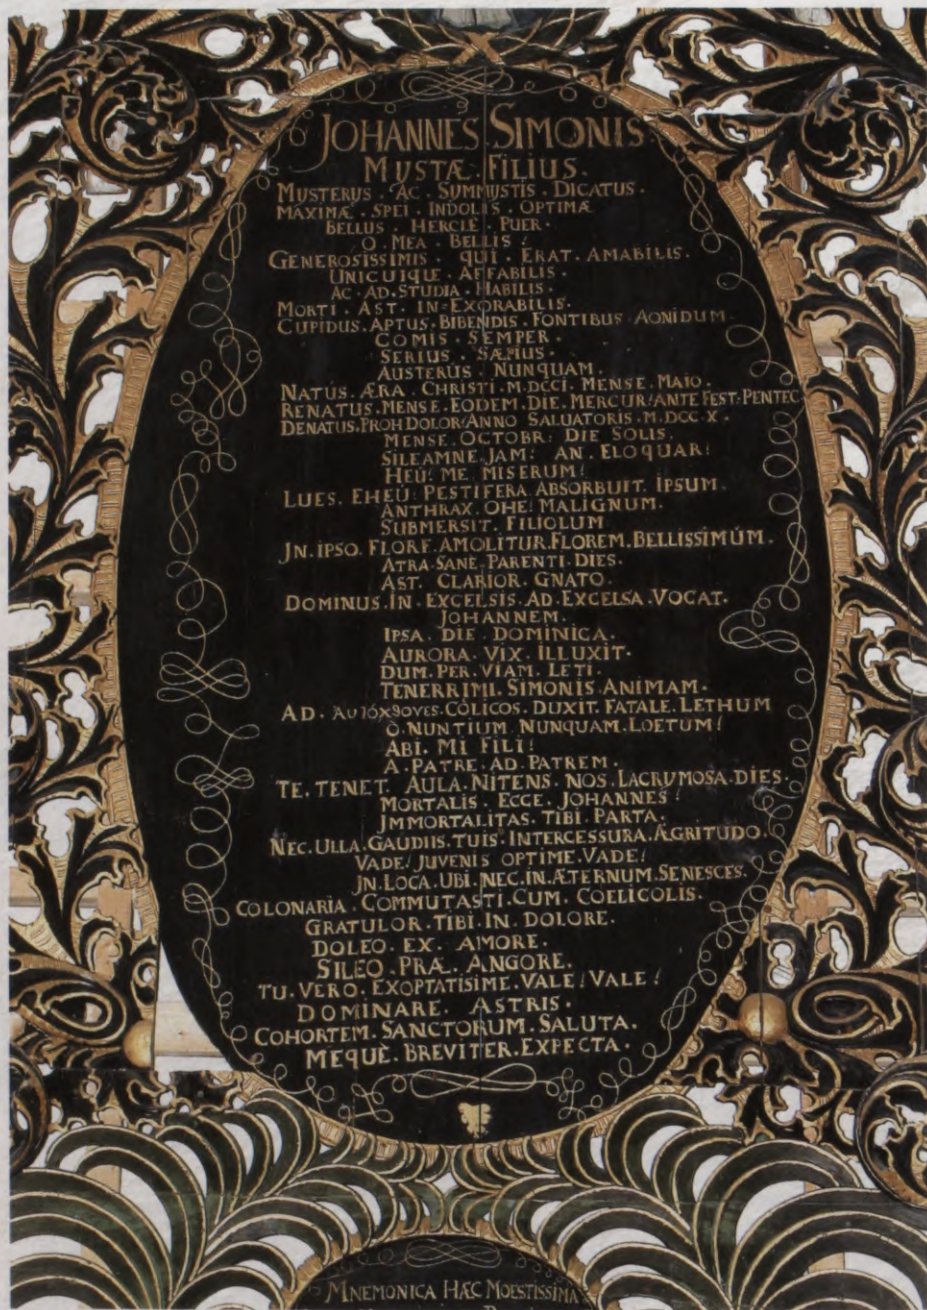 JOHANNES SIMONIS
MYSTÆ · FILIUS ·
MYSTERIIS · AC · SUMMYSTIS · DICATUS ·
MAXIMÆ · SPEI · INDOLIS · OPTIMÆ
BELLUS · HERCLE · PUER ·
O · MEA · BELLIS !
GENEROSISSIMIS · QUI · ERAT · AMABILIS ·
UNICUIQUE · AFFABILIS ·
AC · AD · STUDIA · HABILIS ·
MORTI · AST · IN = EXORABILIS ·
CUPIDUS · APTUS · BIBENDIS · FONTIBUS · AONIDUM ·
COMIS · SEMPER ·
SERIUS · SÆPIUS ·
AUSTERUS · NUNQUAM ·
NATUS · ÆRA · CHRISTI · M · DCCI · MENSE · MAIO ·
RENATUS · MENSE · EODEM · DIE · MERCUR: ANTE FEST: PENTEC
DENATUS · PROH DOLOR! ANNO SALUATORIS · M · DCC · X ·
MENSE · OCTOBR: DIE SOLIS ·
SILEAMNE · JAM! AN · ELOQUAR!
HEÚ! ME MISERUM!
LUES · EHEÚ! PESTIFERA ABSORBUIT IPSUM ·
ANTHRAX · OHE! MALIGNUM ·
SUBMERSIT · FILIOLUM
JN · IPSO · FLORE · AMOLITUR · FLOREM · BELLISSIMÚM ·
ATRA · SANE · PARENTI · DIES ·
AST · CLARIOR · GNATO ·
DOMINUS · IN · EXCELSIS · AD · EXCELSA · VOCAT ·
JOHANNEM ·
IPSA · DIE · DOMINICA ·
AURORA · VIX · ILLUXIT ·
DUM · PER · VIAM · LETI ·
TENERRIMI · SIMONIS · ANIMAM ·
AD · CÖLICOS · DUXIT · FATALE · LETHUM
O · NUNTIUM · NUNQUAM · LOETUM!
ABI · MI · FILI!
A · PATRE · AD · PATREM ·
TE · TENET · AULA · NITENS · NOS · LACRYMOSA · DIES ·
MORTALIS · ECCE · JOHANNES!
JMMORTALITAS · TIBI · PARTA ·
NEC · ULLA · GAUDIIS · TUIS · INTERCESSURA · ÆGRITUDO ·
VADE! JUVENIS OPTIME · VADE!
JN · LOCA · UBI · NEC · IN · ÆTERNUM · SENESCES ·
COLONARIA · COMMUTASTI · CUM · COELICOLIS ·
GRATULOR · TIBI · IN · DOLORE ·
DOLEO · EX · AMORE ·
SILEO · PRÆ · ANGORE ·
TU · VERO · EXOPTATISIME · VALE! VALE!
DOMINARE · ASTRIS ·
COHORTEM · SANCTORUM · SALUTA ·
MEQUÈ · BREVITER · EXPECTA ·
MNEMONICA HÆC MOESTISSIMA